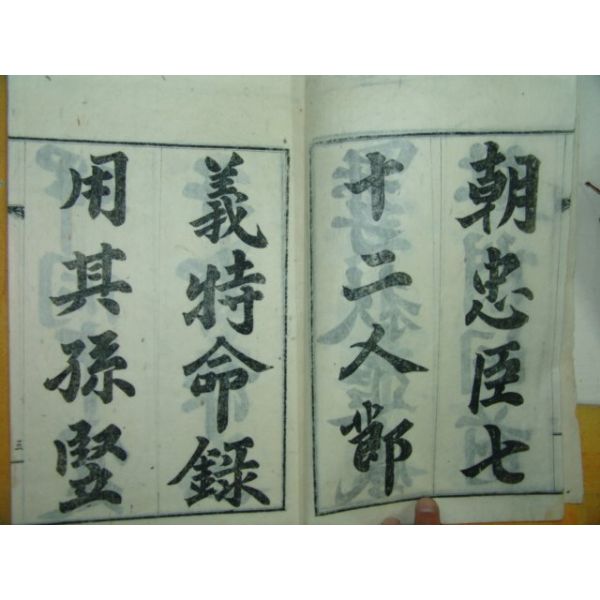 朝忠臣七
十二人節
義特命錄
用其孫竪
三